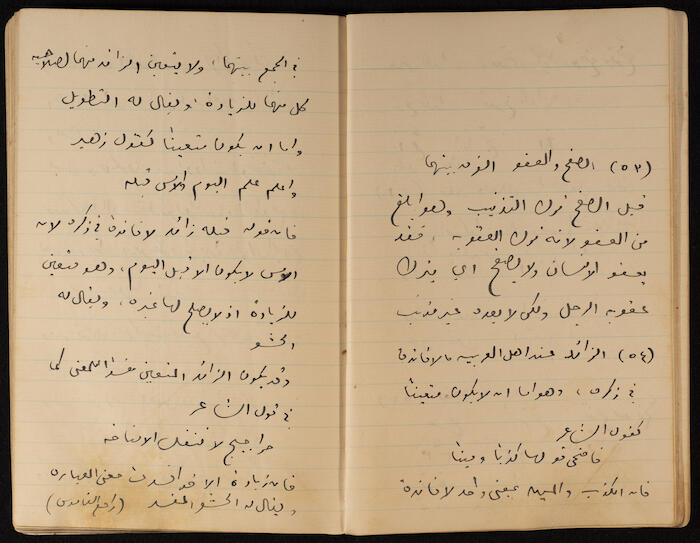 (٥٣) الصفح والعفو الفرق بينهما
قيل الصفح ترك التذنيب وهو ابلغ
من العفو لانه ترك العقوبه ، فقد
يعفو الانسان ولا يصفح اي يترك
عقوبه الرجل ولكن لا يعده غير مذنب
(٥٤) الزائد عند اهل العربيه ما لا فائدة
في ذكره ، وهو اما ان لا يكون متعيناً
كقول الشاعر
فالفى قولها كذباً ومينا
فان الكذب والمين بمعنى واحد لا فائدة
في الجمع بينهما ، ولا يتعين الزائد منهما لصلاحيه
كل منهما للزيادة ويقال له التطويل
واما ان يكون متعيناً كقول زهير
واعلم علم اليوم والامس قبله
فان قوله قبله زائد لا فائدة في ذكره لان
الامس لا يكون الا قبل اليوم ، وهو متعين
للزيادة اذ لا يصلح لها غيره ، ويقال له
الحشو
وقد يكون الزائد المتعين مفسداً للمعنى كما
في قول الشاعر
حراجيج لا تنفك الا مناخه
فان زيادة الا قد افسدت معنى العباره
ويقال له الحشو المفسد (راجع القاموس)